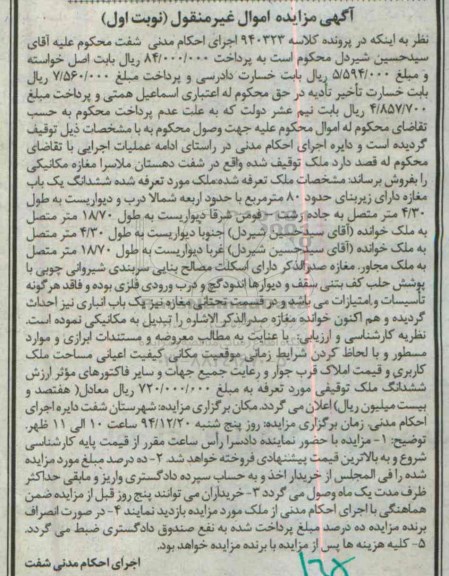 آگهی مزایده اموال غیرمنقول (نوبت اول)
نظر به اینکه در پرونده کلاسه ۹۴۰۳۲۳ اجرای احکام مدنی شفت محکوم علیه آقای
سیدحسین شیردل محکوم است به پرداخت ۸۴/۰۰۰/۰۰۰ ریال بابت اصل خواسته
و مبلغ ۵/۵۹۴/۰۰۰ ریال بابت خسارت دادرسی و پرداخت مبلغ ۷/۵۶۰/۰۰۰ ریال
بابت خسارت تأخیر تأدیه در حق محکوم له اعتباری اسماعیل همتی و پرداخت مبلغ
۴/۸۵۷/۷۰۰ ریال بابت نیم عشر دولت که به علت عدم پرداخت محکوم به حسب
تقاضای محکوم له اموال محکوم علیه جهت وصول محکوم به با مشخصات ذیل توقیف
گردیده است و دایره اجرای احکام مدنی در راستای ادامه عملیات اجرایی با تقاضای
محکوم له قصد دارد ملک توقیف شده واقع در شفت دهستان ملاسرا مغازه مکانیکی
را بفروش برساند: مشخصات ملک تعرفه شده:ملک مورد تعرفه شده ششدانگ یک باب
مغازه دارای زیربنای حدود ۸۰ مترمربع با حدود اربعه شمالا درب و دیواریست به طول
۴/۳۰ متر متصل به جاده رشت - فومن شرقا دیواریست به طول ۱۸/۷۰ متر متصل
به ملک خوانده (آقای سیدحسین شیردل) جنوبا دیواریست به طول ۴/۳۰ متر متصل
به ملک خوانده (آقای سیدحسین شیردل) غربا دیواریست به طول ۱۸/۷۰ متر متصل
به ملک مجاور. مغازه صدرالذکر دارای اسکلت مصالح بنایی سربندی شیروانی چوبی با
پوشش حلب کف بتنی سقف و دیوارها اندودگچ و درب ورودی فلزی بوده و فاقد هرگونه
تأسیسات وامتیازات می باشد و در قسمت تحتانی مغازه نیز یک باب انباری نیز احداث
گردیده و هم اکنون خوانده مغازه صدرالذکر الاشاره را تبدیل به مکانیکی نموده است.
نظریه کارشناسی و ارزیابی: با عنایت به مطالب معروضه و مستندات ابرازی و موارد
مسطور و با لحاظ کردن شرایط زمانی موقعیت مکانی کیفیت اعیانی مساحت ملک
کاربری و قیمت املاک قرب جوار و رعایت جمیع جهات و سایر فاکتورهای مؤثر ارزش
ششدانگ ملک توقیفی مورد تعرفه به مبلغ ۷۲۰/۰۰۰/۰۰۰ ریال معادل( هفتصد و
بیست میلیون ریال) اعلان می گردد. مکان برگزاری مزایده: شهرستان شفت دایره اجرای
احکام مدنی. زمان برگزاری مزایده: روز پنج شنبه ۹۴/۱۲/۲۰ ساعت ۱۰ الی ۱۱ ظهر.
توضیح: ۱- مزایده با حضور نماینده دادسرا رأس ساعت مقرر از قیمت پایه کارشناسی
شروع و به بالاترین قیمت پیشنهادی فروخته خواهد شد. ۲- ده درصد مبلغ مورد مزایده
شده را فی المجلس از خریدار اخذ و به حساب سپرده دادگستری واریز و مابقی حداکثر
ظرف مدت یک ماه وصول می گردد ۳- خریداران می توانند پنج روز قبل از مزایده ضمن
هماهنگی با اجرای احکام مدنی از ملک مورد مزایده بازدید نمایند ۴- در صورت انصراف
برنده مزایده ده درصد مبلغ پرداخت شده به نفع صندوق دادگستری ضبط می گردد.
۵- کلیه هزینه ها پس از مزایده با برنده مزایده خواهد بود.
اجرای احکام مدنی شفت